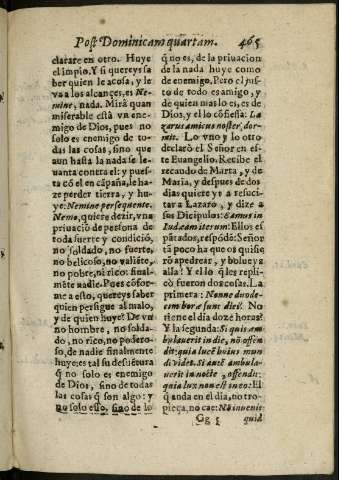 Post Dominicam quartam. 465
clarare en otro. Huye
el impio. Y si quereys sa
ber quien le acosa, y le
va a los alcançes, es Ne-
mine, nada. Mirà quan
miserable està vn ene
migo de Dios, pues no
solo es enemigo de to-
das las cosas, sino que
aun hasta la nada se le-
uanta contra el: y pues-
ta cõ el en cãpaña, le ha-
ze perder tierra, y hu-
ye: Nemine persequente.
Nemo, quiere dezir, vna
priuaciõ de persona de
toda suerte y condiciõ,
no soldado, no fuerte,
no belicoso, no valiẽte,
no pobre, ni rico: final-
mẽte nadie. Pues cõfor-
me a esto, quereys saber
quien persigue al malo,
y de quien huye? De vn
no hombre, no solda-
do, no rico, no podero-
so, de nadie finalmente
huye: es tal su desuẽtura
q̃ no solo es enemigo
de Dios, sino de todas
las cosas q̃ son algo: y
no solo esso, sino de lo
q̃ no es, de la priuacion
de la nada huye como
de enemigo. Pero el jus-
to de todo es amigo, y
de quien mas lo es, es de
Dios, y el lo cõfiessa: La
zarus amicus noster, dor-
mit. Lo vno y lo otro
declarò el Señor en es-
te Euangelio. Recibe el
recaudo de Marta, y de
Maria, y despues de dos
dias quiere yr a resuci-
tar a Lazaro, y dize a
sus Dicipulos: Eamus in
Iudæam iterum: Ellos es
pãtados, respõdẽ: Señor
tã poco ha que os quisie
rõ apedrear, y bolueys
alla? Y el lo q̃ les repli-
cò fueron dos cosas. La
primera: Nonne duode-
cim horæ sunt diei? No
tiene el dia doze horas?
Y la segunda: Si quis am
bulauerit in die, nõ offen
dit: quia lucẽ huius mun
di videt. Si autẽ ambula-
uerit in nocte, offendit:
quia lux non est in eo: El
q̃ anda en el dia, no tro-
pieça, no cae: Nõ inuenit
Gg 5 quid